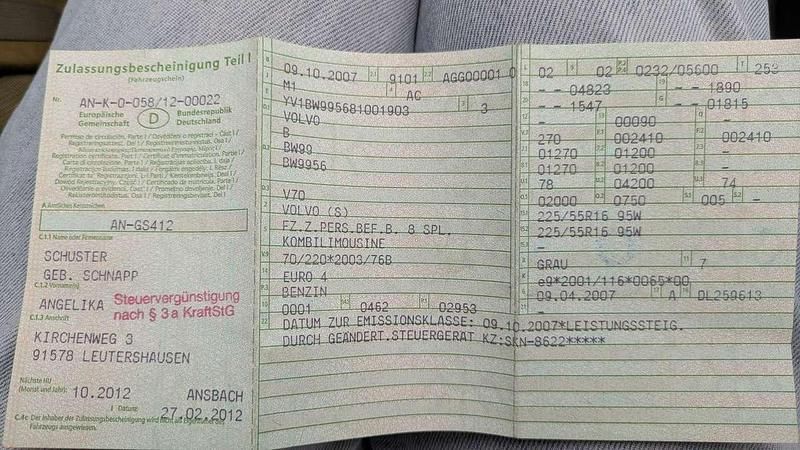 Zulassungsbescheinigung Teil I
(Fahrzeugschein)
Nr. AN-K-0-058/12-00022
Europäische Gemeinschaft D Bundesrepublik Deutschland
A Amtliches Kennzeichen
AN-GS412
C.1.1 Name oder Firmenname
SCHUSTER
GEB. SCHNAPP
C.1.2 Vorname(n)
ANGELIKA
Steuervergünstigung
nach § 3a KraftStG
C.1.3 Anschrift
KIRCHENWEG 3
91578 LEUTERSHAUSEN
Nächste HU
(Monat und Jahr) 10.2012 ANSBACH
I Datum: 27.02.2012
C.4c Der Inhaber der Zulassungsbescheinigung wird nicht als Eigentümer des
Fahrzeugs ausgewiesen.
09.10.2007 9101 AGG00001 0
M1 AC
YV1BW995681001903 3
VOLVO
B
BW99
BW9956
V70
VOLVO (S)
FZ.Z.PERS.BEF.B. 8 SPL.
KOMBILIMOUSINE
70/220*2003/76B
EURO 4
BENZIN
0001 0462 02953
DATUM ZUR EMISSIONSKLASSE: 09.10.2007*LEISTUNGSSTEIG.
DURCH GEÄNDERT.STEUERGERÄT KZ:SKN-8622*****
02 02 0232/05600 253
- - 04823 - - 1890
- - 1547 - - 01815
- 00090 -
270 002410 002410
01270 01200 -
01270 01200 -
78 04200 74
02000 0750 005 -
225/55R16 95W
225/55R16 95W
-
GRAU 7
e9*2001/116*0065*00
09.04.2007 A DL259613
-